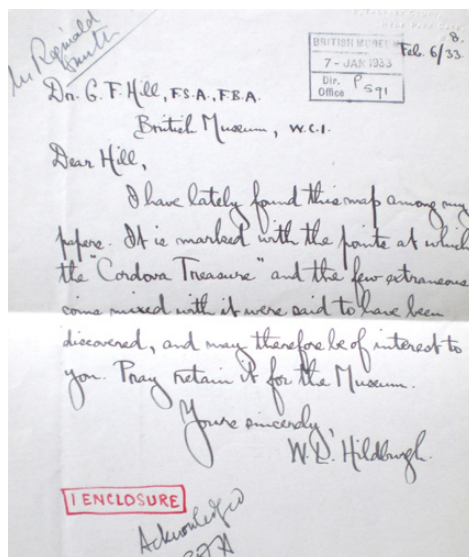 Mr Reginald
Smith
8.
Feb. 6/33.
BRITISH MUSEUM
7 - JAN 1933
Dir. P
Office 591
Dr. G. F. Hill, F.S.A., F.B.A.
British Museum, W.C.1.
Dear Hill,
I have lately found this map among my
papers. It is marked with the points at which
the "Cordova Treasure" and the few extraneous
coins mixed with it were said to have been
discovered, and may therefore be of interest to
you. Pray retain it for the Museum.
Yours sincerely,
W. L. Hildburgh.
1 ENCLOSURE
Acknowledged